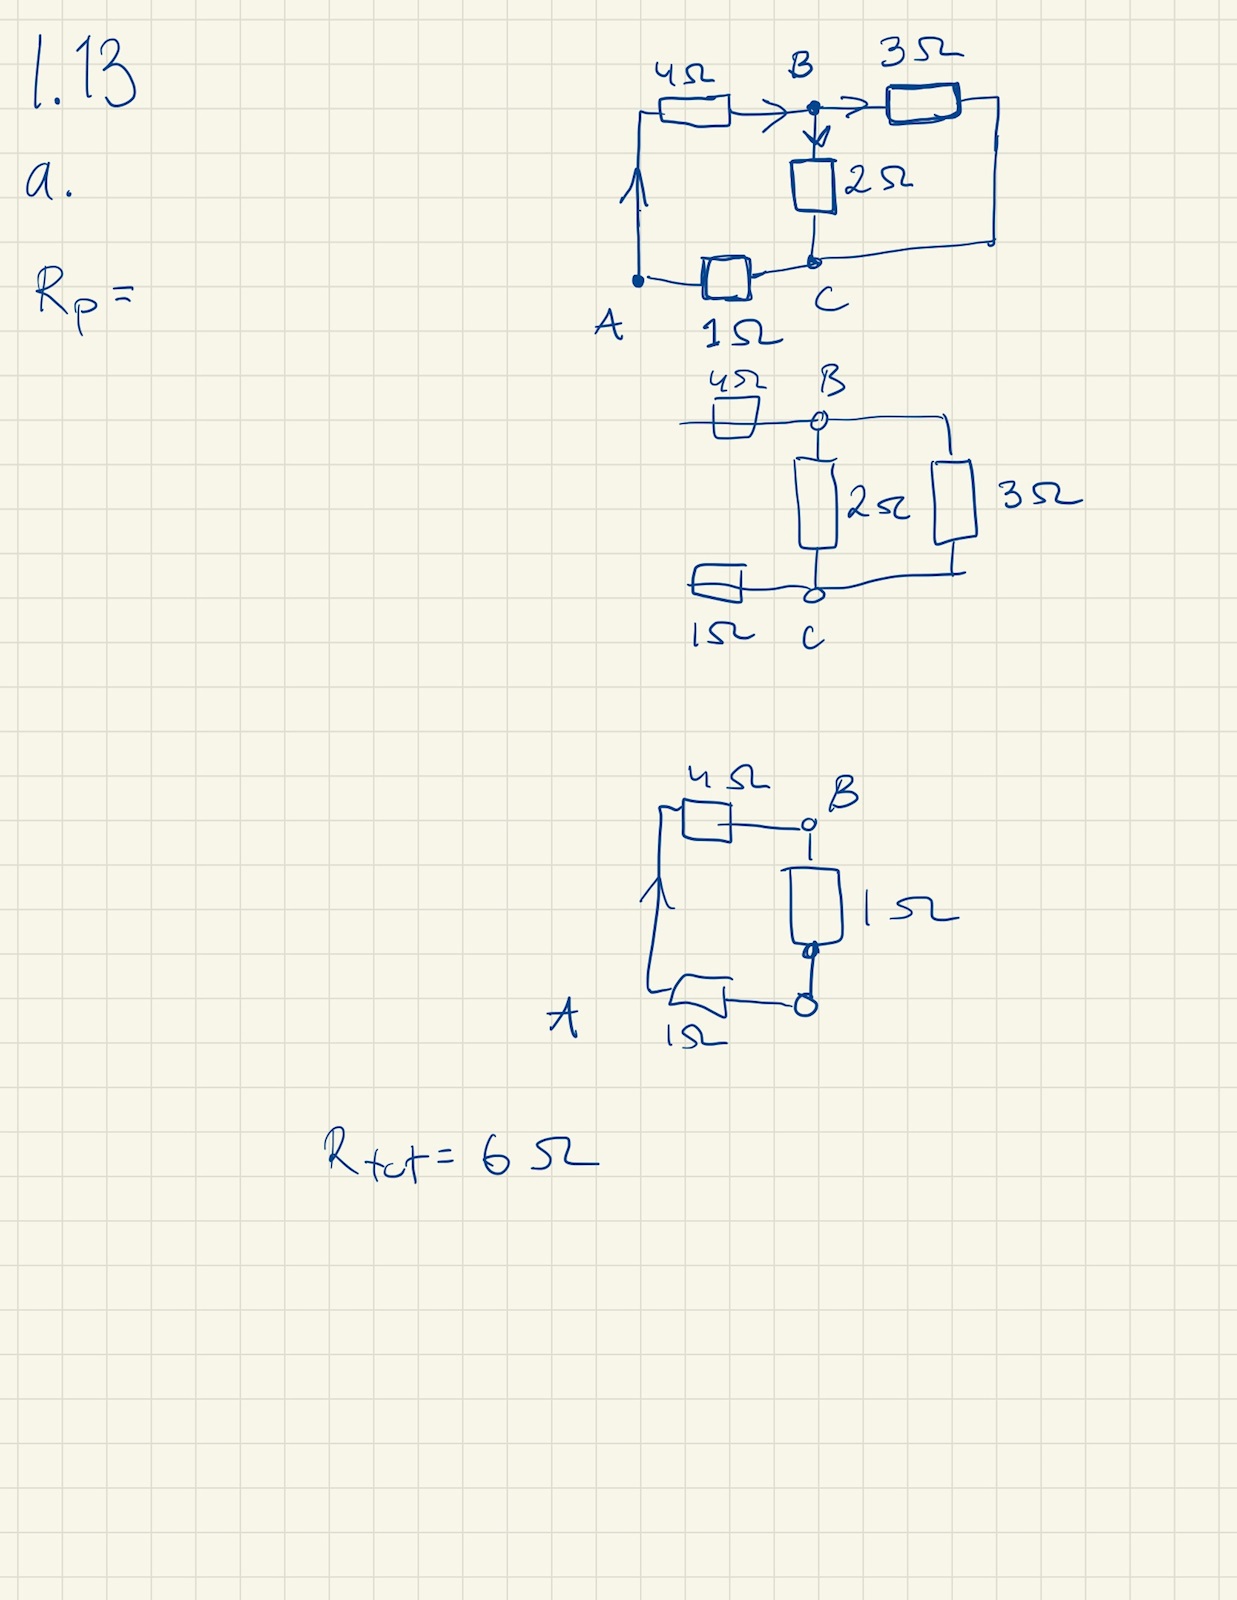 1.13
a.
Rp =
4Ω B 3Ω
2Ω
A 1Ω C
4Ω B
2Ω 3Ω
1Ω C
4Ω B
1Ω
A 1Ω
Rtot = 6 Ω